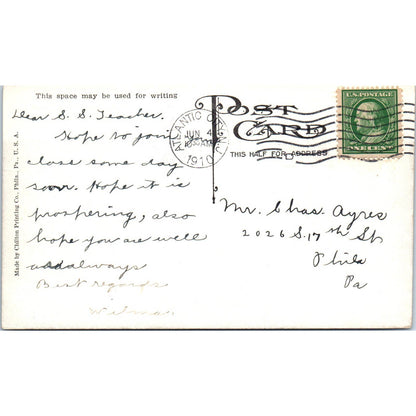 This space may be used for writing
Dear S. S. Teacher.
Hope to join
class some day
soon. Hope it is
prospering, also
hope you are well
always
Best regards
Wilma
Made by Chilton Printing Co., Phila., Pa., U. S. A.
POST CARD
THIS HALF FOR ADDRESS
ATLANTIC CITY, N.J.
JUN 4
1910
U.S. POSTAGE
ONE CENT
Mr. Chas. Ayres
2026 S. 17th St
Phila
Pa